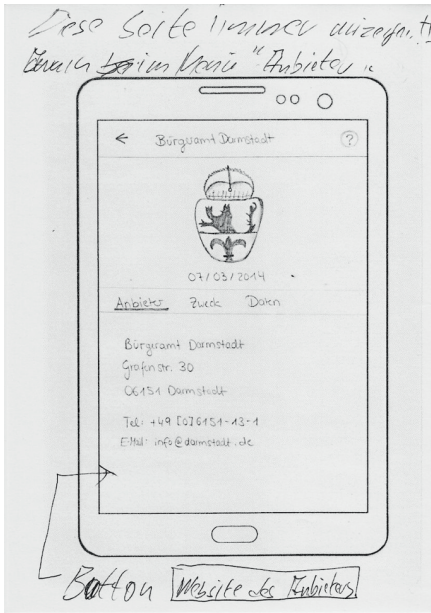 Diese Seite immer anzeigen!!
beim Menü "Anbieter"
← Bürgeramt Darmstadt ?
07/03/2014
Anbieter Zweck Daten
Bürgeramt Darmstadt
Grafenstr. 30
06151 Darmstadt
Tel: +49 [0]6151-13-1
E-Mail: info@darmstadt.de
Button Website des Anbieters